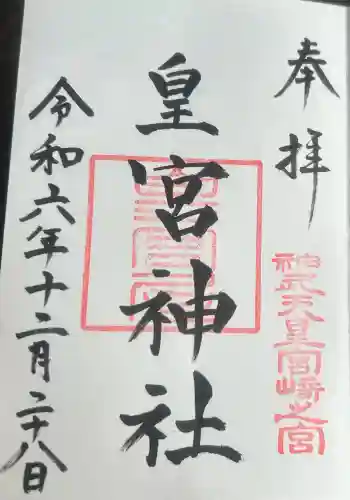 奉拝
神武天皇宮崎之宮
皇宮神社
令和六年十二月二十八日